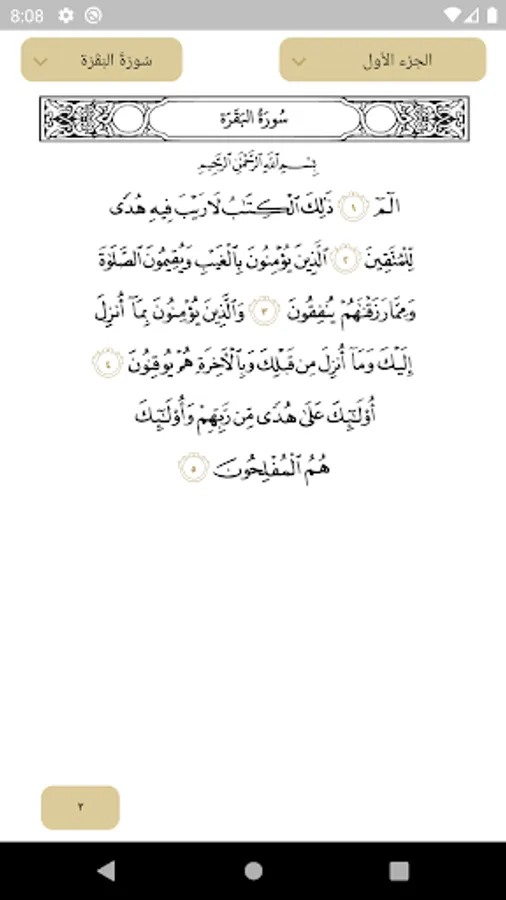 8:08
الجزء الأول سُورَةُ البَقَرَة
سُورَةُ البَقَرَة
بِسْمِ ٱللَّهِ ٱلرَّحْمَٰنِ ٱلرَّحِيمِ
الٓمٓ ١ ذَٰلِكَ ٱلْكِتَٰبُ لَا رَيْبَ فِيهِ هُدًى
لِّلْمُتَّقِينَ ٢ ٱلَّذِينَ يُؤْمِنُونَ بِٱلْغَيْبِ وَيُقِيمُونَ ٱلصَّلَوٰةَ
وَمِمَّا رَزَقْنَٰهُمْ يُنفِقُونَ ٣ وَٱلَّذِينَ يُؤْمِنُونَ بِمَآ أُنزِلَ
إِلَيْكَ وَمَآ أُنزِلَ مِن قَبْلِكَ وَبِٱلْءَاخِرَةِ هُمْ يُوقِنُونَ ٤
أُو۟لَٰٓئِكَ عَلَىٰ هُدًى مِّن رَّبِّهِمْ وَأُو۟لَٰٓئِكَ
هُمُ ٱلْمُفْلِحُونَ ٥
٢